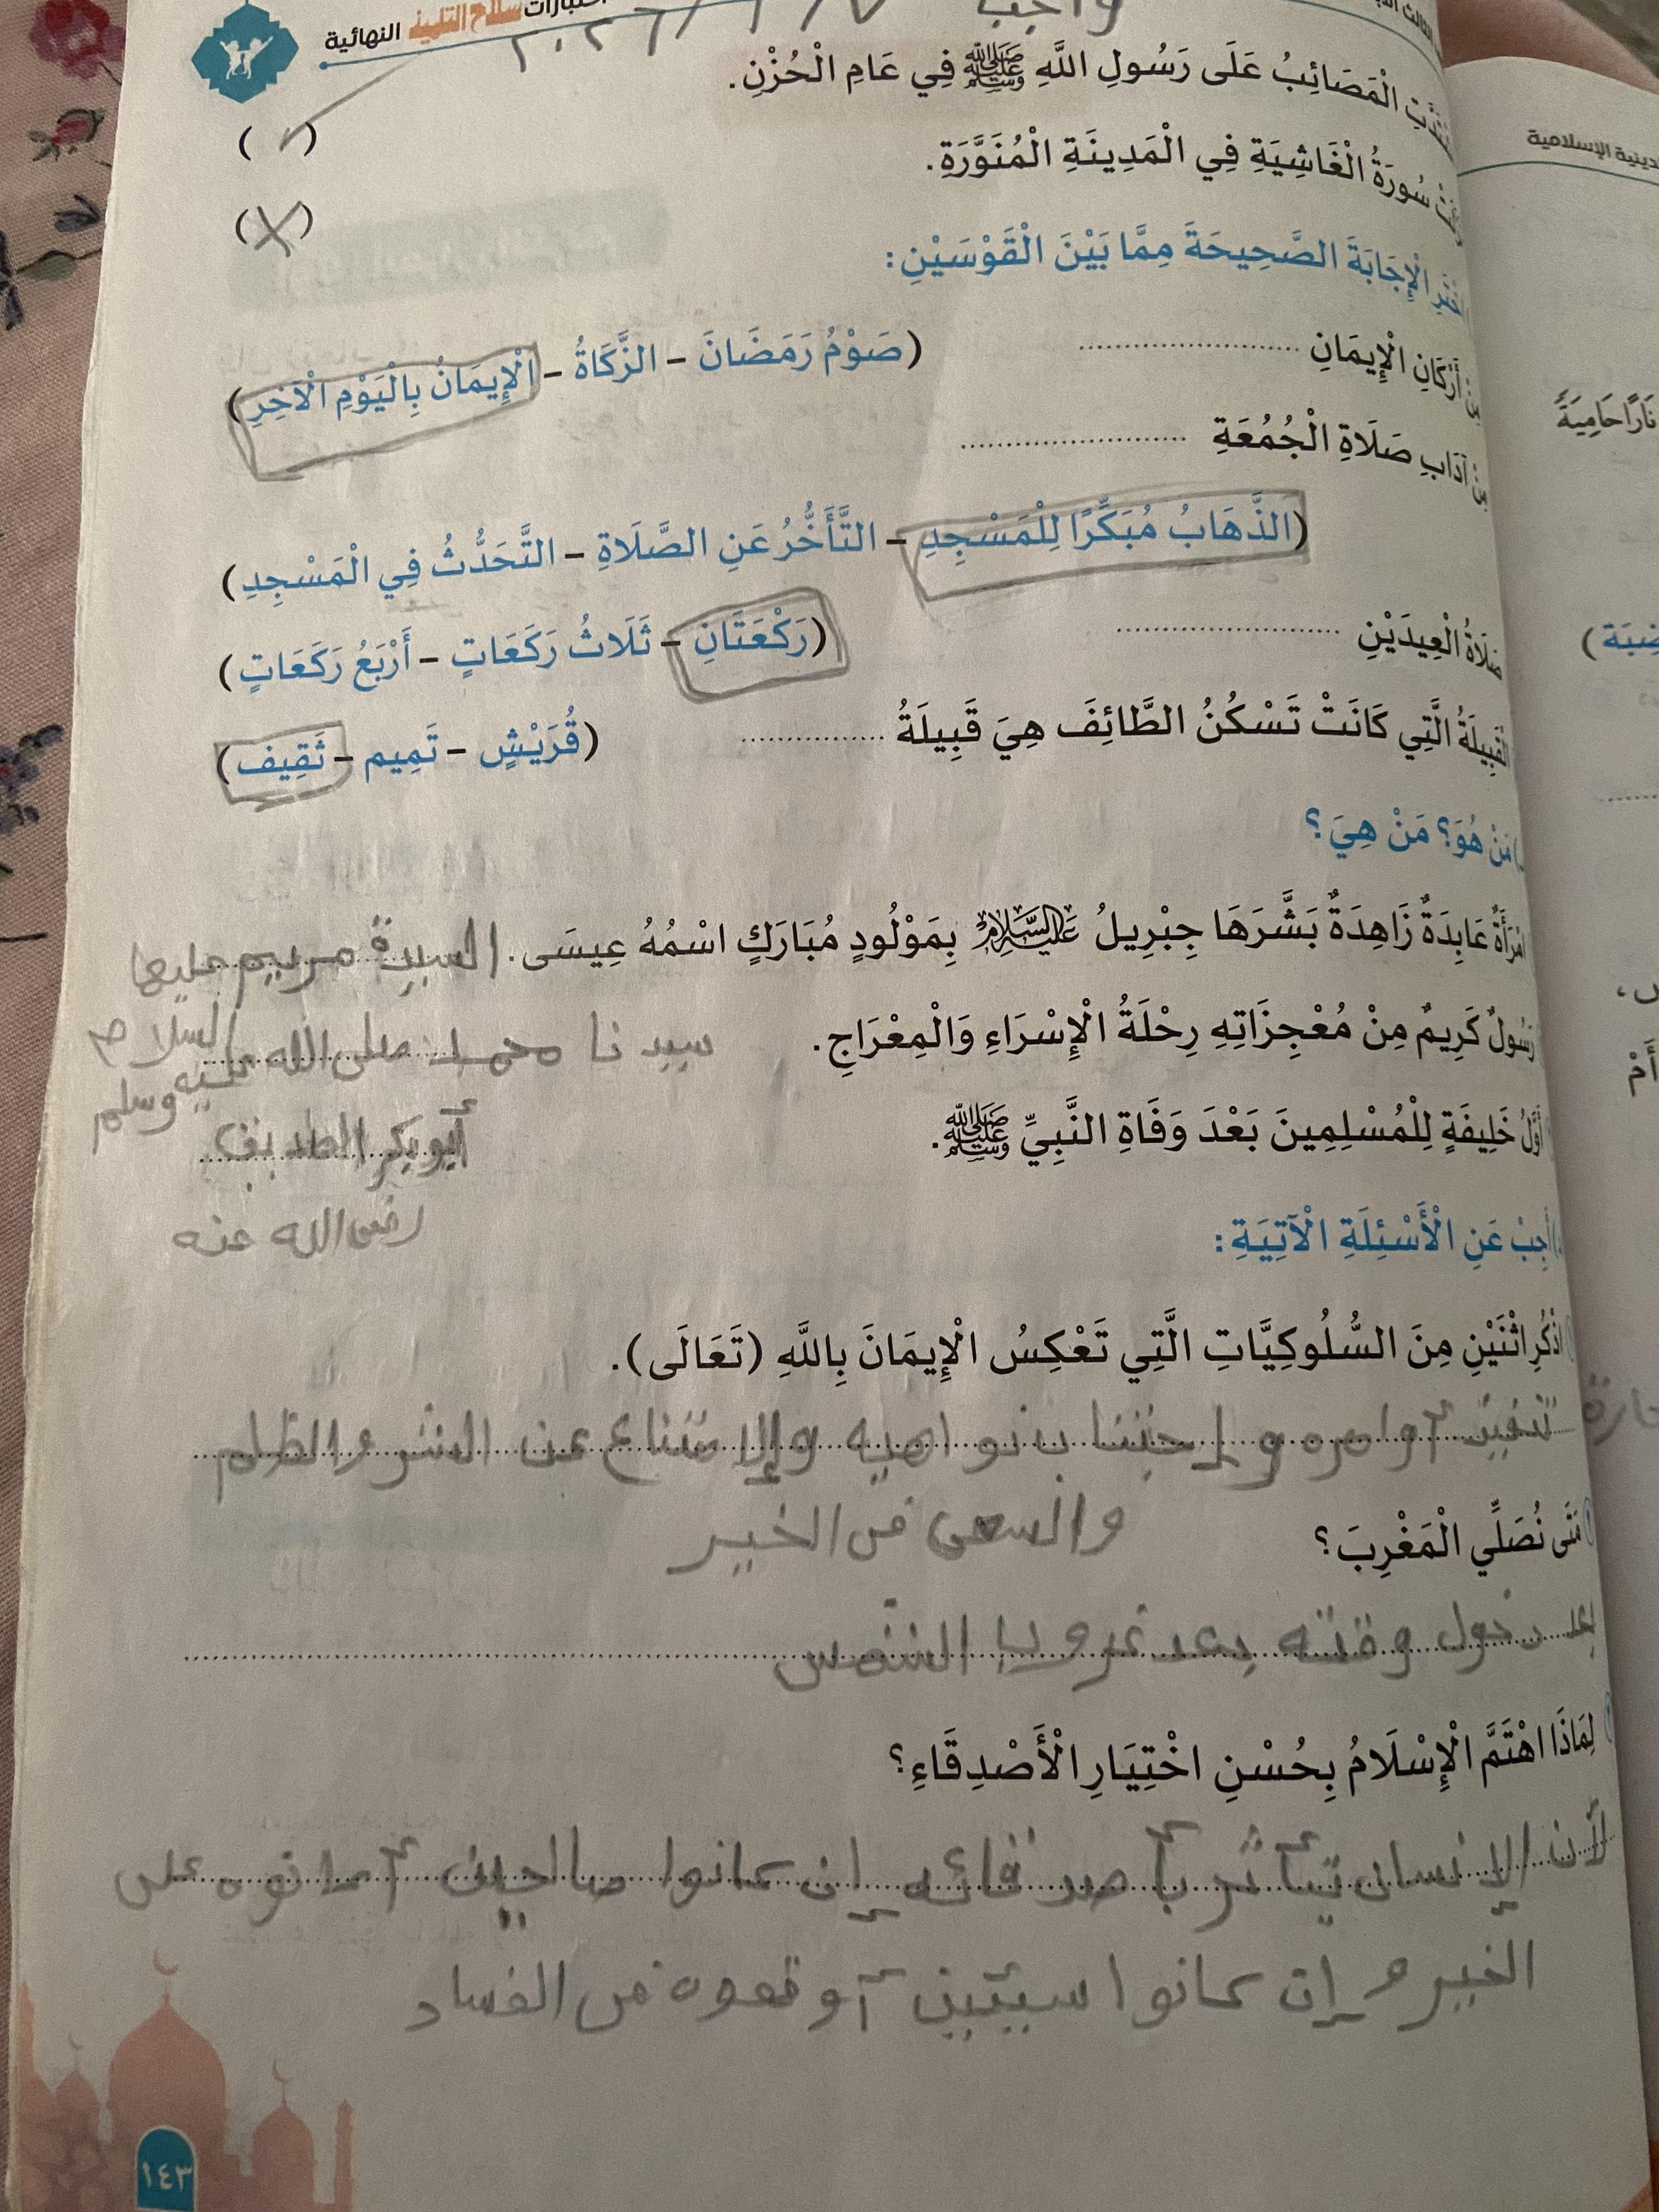 اختبارات سلاح التلميذ النهائية
واجب ٢٠٢٦/١/٧
الْمَصَائِبُ عَلَى رَسُولِ اللَّهِ ﷺ فِي عَامِ الْحُزْنِ. (✓)
سُورَةُ الْغَاشِيَةِ فِي الْمَدِينَةِ الْمُنَوَّرَةِ. (X)
الْإِجَابَةَ الصَّحِيحَةَ مِمَّا بَيْنَ الْقَوْسَيْنِ:
مِنْ أَرْكَانِ الْإِيمَانِ ............ (صَوْمُ رَمَضَانَ – الزَّكَاةُ – الْإِيمَانُ بِالْيَوْمِ الْآخِرِ)
مِنْ آدَابِ صَلَاةِ الْجُمُعَةِ ............
(الذَّهَابُ مُبَكِّرًا لِلْمَسْجِدِ – التَّأَخُّرُ عَنِ الصَّلَاةِ – التَّحَدُّثُ فِي الْمَسْجِدِ)
صَلَاةُ الْعِيدَيْنِ ............ (رَكْعَتَانِ – ثَلَاثُ رَكَعَاتٍ – أَرْبَعُ رَكَعَاتٍ)
الْقَبِيلَةُ الَّتِي كَانَتْ تَسْكُنُ الطَّائِفَ هِيَ قَبِيلَةُ ............ (قُرَيْشٍ – تَمِيم – ثَقِيف)
مَنْ هُوَ؟ مَنْ هِيَ؟
امْرَأَةٌ عَابِدَةٌ زَاهِدَةٌ بَشَّرَهَا جِبْرِيلُ عَلَيْهِ السَّلَامُ بِمَوْلُودٍ مُبَارَكٍ اسْمُهُ عِيسَى. السيدة مريم عليها
السلام
رَسُولٌ كَرِيمٌ مِنْ مُعْجِزَاتِهِ رِحْلَةُ الْإِسْرَاءِ وَالْمِعْرَاجِ. سيدنا محمد صلى الله عليه وسلم
أَوَّلُ خَلِيفَةٍ لِلْمُسْلِمِينَ بَعْدَ وَفَاةِ النَّبِيِّ ﷺ. أبو بكر الصديق
رضى الله عنه
أَجِبْ عَنِ الْأَسْئِلَةِ الْآتِيَةِ:
اذْكُرِ اثْنَيْنِ مِنَ السُّلُوكِيَّاتِ الَّتِي تَعْكِسُ الْإِيمَانَ بِاللَّهِ (تَعَالَى).
تنفيذ أوامره و إجتناب نواهيه والإمتناع عن الشر والظلم
والسعى فى الخير
مَتَى نُصَلِّي الْمَغْرِبَ؟
دخول وقته بعد غروب الشمس
لِمَاذَا اهْتَمَّ الْإِسْلَامُ بِحُسْنِ اخْتِيَارِ الْأَصْدِقَاءِ؟
لأن الإنسان يتأثر بأصدقائه إن كانوا صالحين أعانوه على
الخير و إن كانوا سيئين أوقعوه فى الفساد
١٤٣
الدينية الإسلامية
نَارًا حَامِيَةً
أَمْ